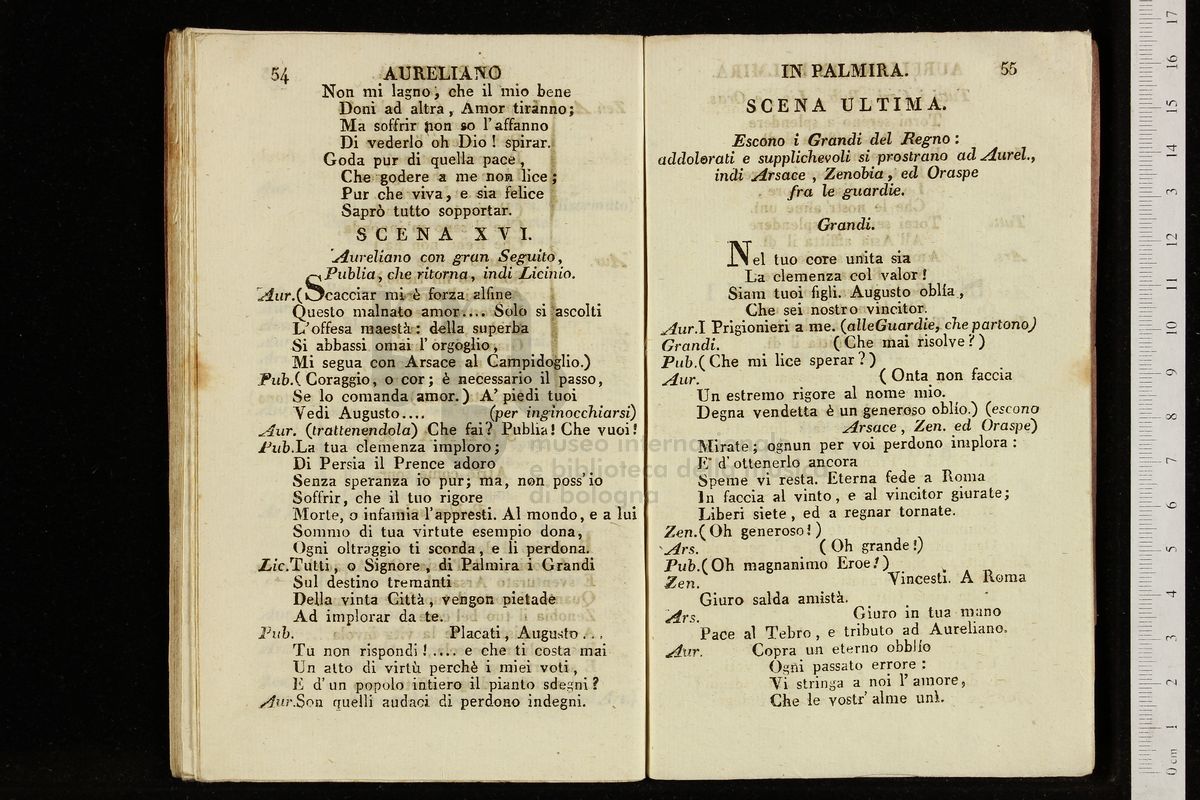 54 AURELIANO
Non mi lagno, che il mio bene
Doni ad altra, Amor tiranno;
Ma soffrir non so l'affanno
Di vederlo oh Dio! spirar.
Goda pur di quella pace,
Che godere a me non lice;
Pur che viva, e sia felice
Saprò tutto sopportar.
SCENA XVI.
Aureliano con gran Seguito,
Publia, che ritorna, indi Licinio.
Aur.(Scacciar mi è forza alfine
Questo malnato amor.... Solo si ascolti
L'offesa maestà: della superba
Si abbassi omai l'orgoglio,
Mi segua con Arsace al Campidoglio.)
Pub.(Coraggio, o cor; è necessario il passo,
Se lo comanda amor.) A' piedi tuoi
Vedi Augusto.... (per inginocchiarsi)
Aur. (trattenendola) Che fai? Publia! Che vuoi!
Pub.La tua clemenza imploro;
Di Persia il Prence adoro
Senza speranza io pur; ma, non poss'io
Soffrir, che il tuo rigore
Morte, o infamia l'appresti. Al mondo, e a lui
Sommo di tua virtute esempio dona,
Ogni oltraggio ti scorda, e li perdona.
Lic.Tutti, o Signore, di Palmira i Grandi
Sul destino tremanti
Della vinta Città, vengon pietade
Ad implorar da te.
Pub. Placati, Augusto...
Tu non rispondi!.... e che ti costa mai
Un atto di virtù perchè i miei voti,
E d'un popolo intiero il pianto sdegni?
Aur.Son quelli audaci di perdono indegni.
IN PALMIRA. 55
SCENA ULTIMA.
Escono i Grandi del Regno:
addolorati e supplichevoli si prostrano ad Aurel.,
indi Arsace, Zenobia, ed Oraspe
fra le guardie.
Grandi.
Nel tuo core unita sia
La clemenza col valor!
Siam tuoi figli. Augusto oblía,
Che sei nostro vincitor.
Aur.I Prigionieri a me. (alleGuardie, che partono)
Grandi. (Che mai risolve?)
Pub.(Che mi lice sperar?)
Aur. (Onta non faccia
Un estremo rigore al nome mio.
Degna vendetta è un generoso oblío.) (escono
Arsace, Zen. ed Oraspe)
Mirate; ognun per voi perdono implora:
E d'ottenerlo ancora
Speme vi resta. Eterna fede a Roma
In faccia al vinto, e al vincitor giurate;
Liberi siete, ed a regnar tornate.
Zen.(Oh generoso!)
Ars. (Oh grande!)
Pub.(Oh magnanimo Eroe!)
Zen. Vincesti. A Roma
Giuro salda amistà.
Ars. Giuro in tua mano
Pace al Tebro, e tributo ad Aureliano.
Aur. Copra un eterno obblío
Ogni passato errore:
Vi stringa a noi l'amore,
Che le vostr'alme unì.
museo internazionale
e biblioteca della musica
di bologna
0 cm 1 2 3 4 5 6 7 8 9 10 11 12 13 14 15 16 17